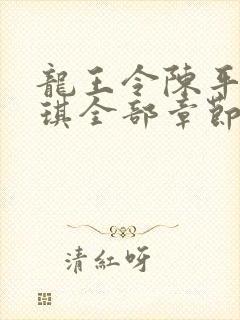 龍王令陳平
琪全部章節
清紅呀